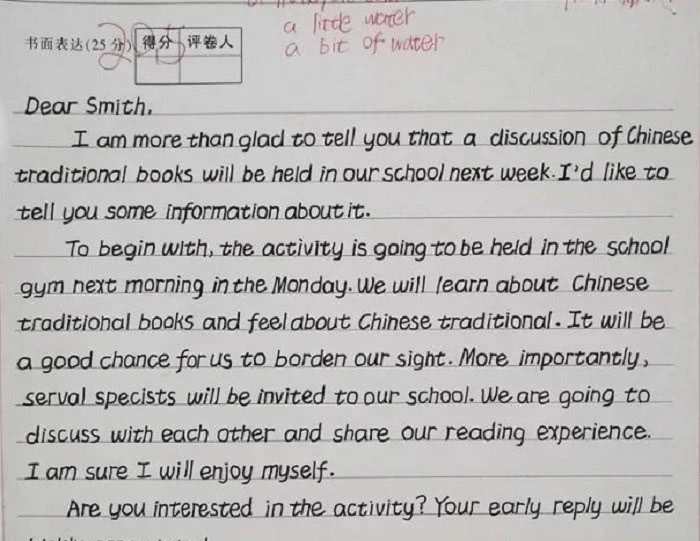 a little water
书面表达(25分) 得分 评卷人
a bit of water
Dear Smith,
I am more than glad to tell you that a discussion of Chinese
traditional books will be held in our school next week. I'd like to
tell you some information about it.
To begin with, the activity is going to be held in the school
gym next morning in the Monday. We will learn about Chinese
traditional books and feel about Chinese traditional. It will be
a good chance for us to borden our sight. More importantly,
serval specists will be invited to our school. We are going to
discuss with each other and share our reading experience.
I am sure I will enjoy myself.
Are you interested in the activity? Your early reply will be